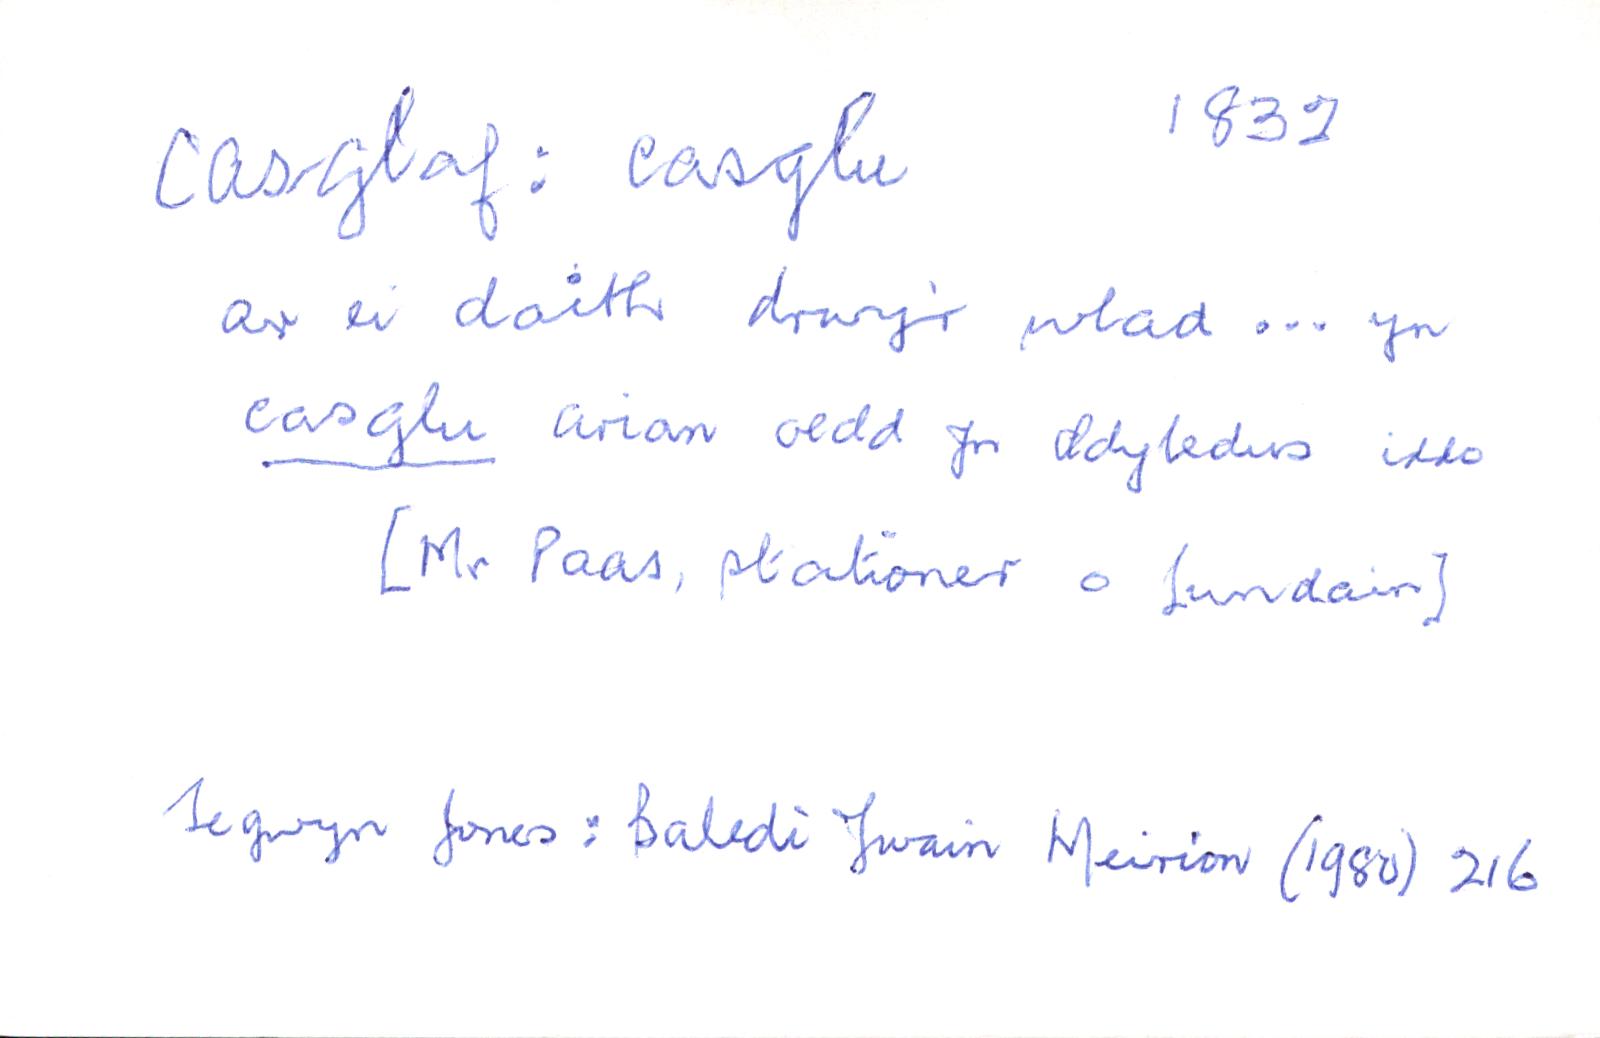 casglaf: casglu 1832
ar ei daith drwy'r wlad ... yn
casglu arian oedd yn ddyledus iddo
[Mr Paas, stationer o Lundain]
Tegwyn Jones: Baledi Ywain Meirion (1980) 216